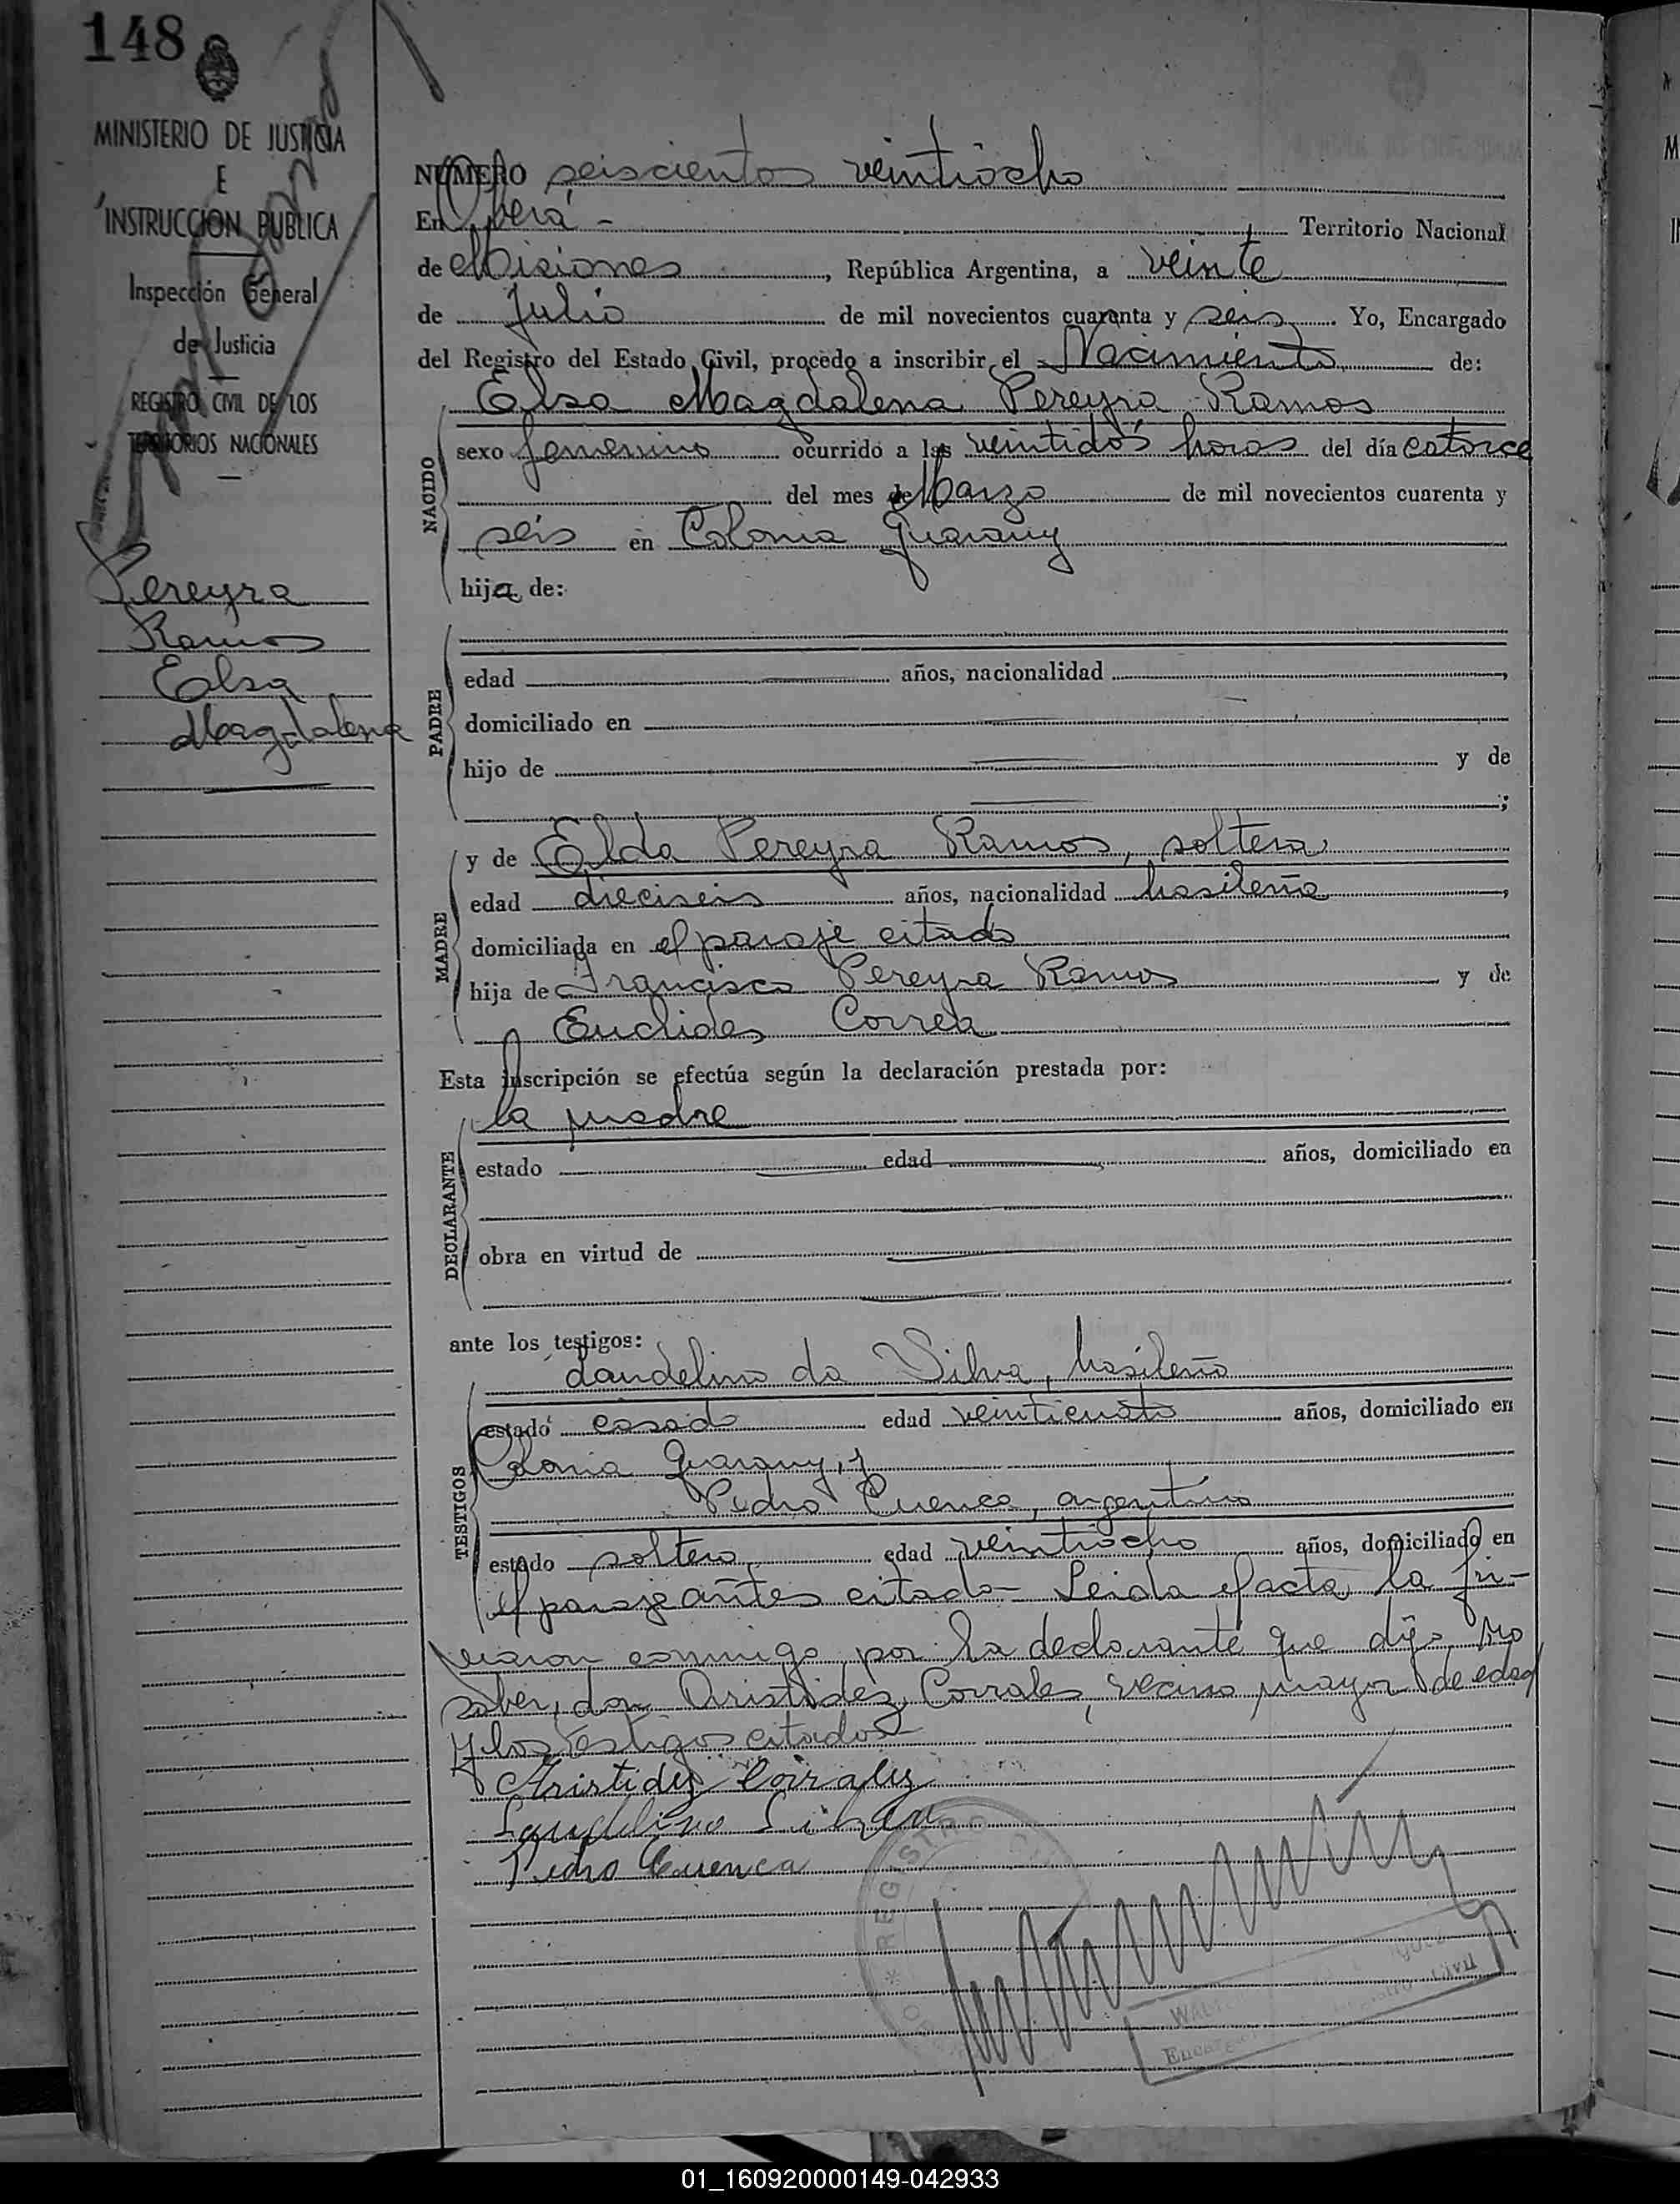 148
MINISTERIO DE JUSTICIA
E
INSTRUCCION PUBLICA
Inspección General
de Justicia
REGISTRO CIVIL DE LOS
TERRITORIOS NACIONALES
Pereyra
Ramos
Elsa
Magdalena
NUMERO seiscientos veintiocho
En Oberá - Territorio Nacional
de Misiones, República Argentina, a veinte
de Julio de mil novecientos cuarenta y seis. Yo, Encargado
del Registro del Estado Civil, procedo a inscribir el Nacimiento de:
Elsa Magdalena Pereyra Ramos
NACIDO
sexo femenino ocurrido a las veintidós horas del día catorce
del mes de Marzo de mil novecientos cuarenta y
seis en Colonia Guarany
hija de:
PADRE
edad años, nacionalidad ,
domiciliado en
hijo de y de
;
MADRE
y de Elda Pereyra Ramos, soltera
edad dieciseis años, nacionalidad brasileña,
domiciliada en el paraje citado
hija de Francisco Pereyra Ramos y de
Euclides Correa
Esta inscripción se efectúa según la declaración prestada por:
la madre
DECLARANTE
estado edad años, domiciliado en
obra en virtud de
ante los testigos:
Laudelino da Silva, brasileño
TESTIGOS
estado casado edad veinticuatro años, domiciliado en
Colonia Guarany, y
Pedro Cuenca, argentino
estado soltero edad veintiocho años, domiciliado en
el paraje antes citado - Leida el acta, la fir-
maron conmigo por la declarante que dijo no
saber, don Aristides Corrales, vecino mayor de edad
y los testigos citados
Aristides Corrales
Laudelino Silva
Pedro Cuenca
REGISTRO
Civil
01_160920000149-042933